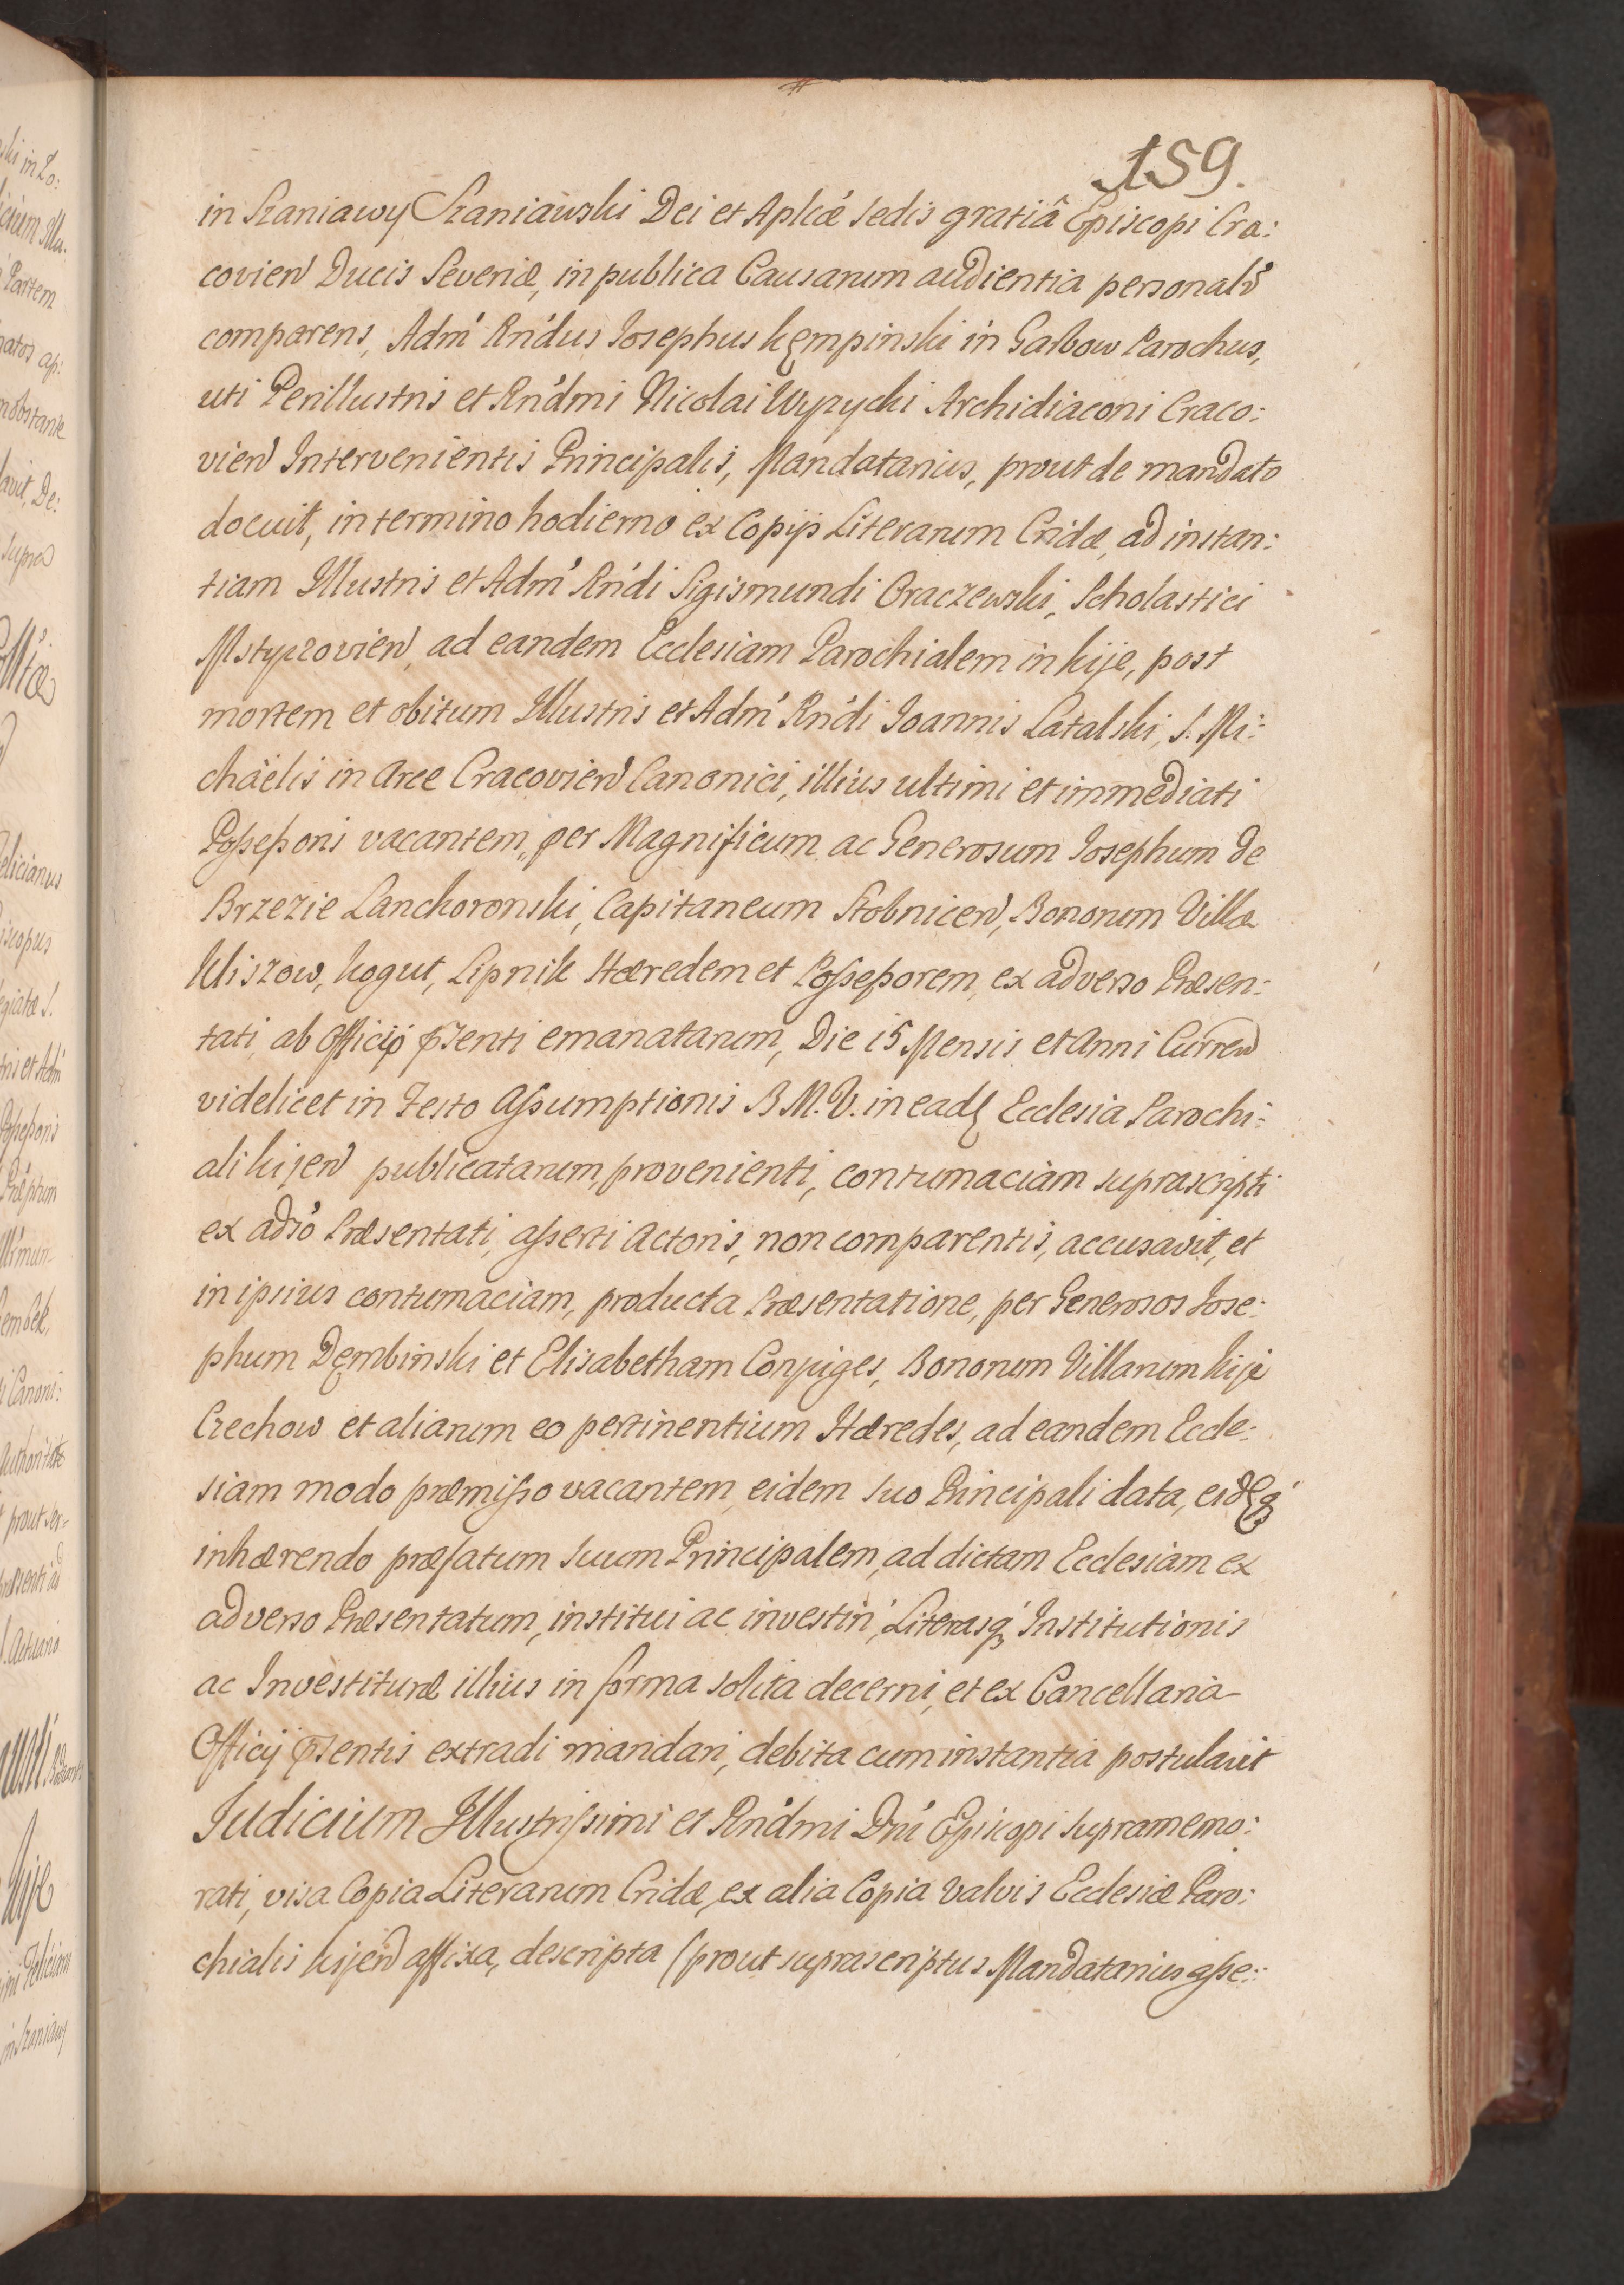 159.
in Szaniawy Szaniawski Dei et Aplicæ Sedis gratiâ Episcopi Cra:
covien Ducis Severiæ, in publica Causarum audientia personalr
comparens, Adm' Rn'dus Josephus Kępinski in Garbow Parochus,
uti Perillustris et Rn'dmi Nicolai Wyzycki Archidiaconi Craco:
vien Intervenientis Principalis, Mandatarius, prout de mandato
docuit, in termino hodierno ex Copijs Literarum Cridæ, ad instan:
tiam Illustris et Adm' Rn'di Sigismundi Oraczewski, Scholastici
Mstyczovien, ad eandem Ecclesiam Parochialem in Kije, post
mortem et obitum Illustris et Adm' Rn'di Joannis Latalski, S. Mi:
chaëlis in Arce Cracovien Canonici, illius ultimi et immediati
Possessoris vacantem, per Magnificum ac Generosum Josephum de
Brzezie Lanchoronski, Capitaneum Stobnicen, Bonorum Villæ
Kliszow, Kogut, Lipnik Hæredem et Possessorem, ex adverso Præsen:
tati, ab Officio p̄senti emanatarum, Die 15 Mensis et Anni Curren
videlicet in Festo Assumptionis B. M. V. in eadę Ecclesia Parochi:
ali Kijen publicatarum, provenienti, contumaciam suprascripti
ex adṡo Præsentati, asserti Actoris, non comparentis, accusavit, et
in ipsius contumaciam, producta Præsentatione, per Generosos Jose:
phum Dęmbinski et Elisabetham Conjuges, Bonorum Villarum Kije
Czechow et aliarum eo pertinentium Hæredes, ad eandem Eccle:
siam modo præmisso vacantem, eidem suo Principali data, eidęq́
inhærendo præfatum suum Principalem, ad dictam Ecclesiam ex
adverso Præsentatum, institui ac investiri, Literasq́ Institutionis
ac Investituræ illius in forma solita decerni, et ex Cancellaria
Officij p̄sentis extradi mandari, debita cum instantia postulavit
Judicium Illustrissimi et Rn'dmi Dn'i Episcopi supramemo:
rati, visa Copia Literarum Cridæ, ex alia Copia valvis Ecclesiæ Paro:
chialis Kijen affixa, descripta (prout suprascriptus Mandatarius asse: